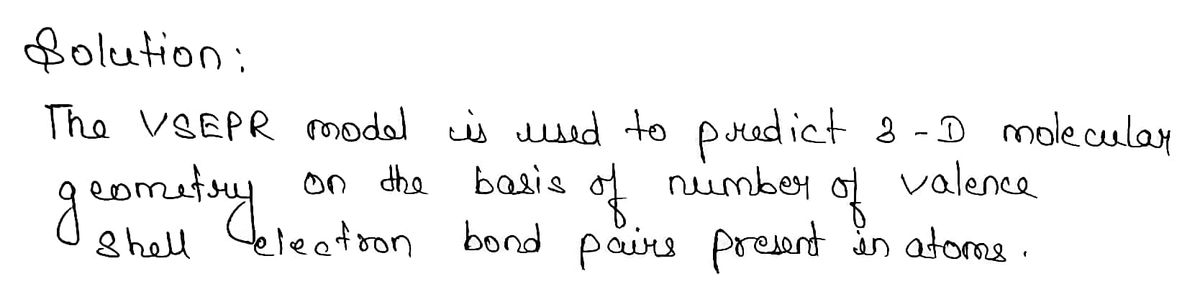 Solution:
The VSEPR model is used to predict 3-D molecular
geometry on the basis of number of valence
shell electron bond pairs present in atoms.